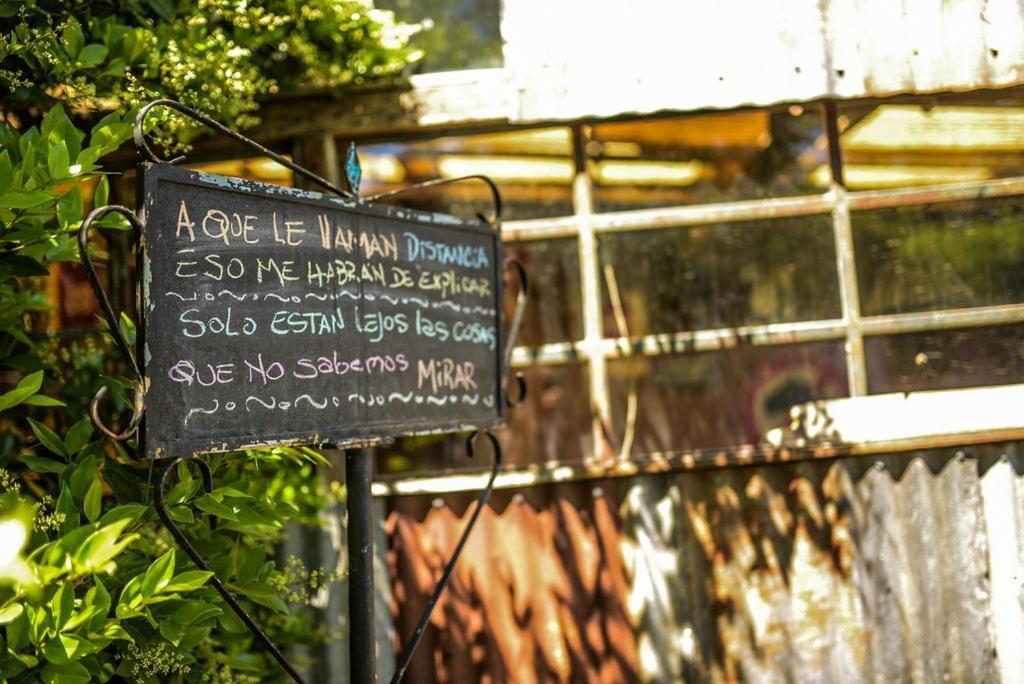 A QUE LE llAMAN DISTANCIA
ESO ME HABRAN DE EXPLICAR
SOLO ESTAN lejos las COSAS
QUE NO sabemos MiRAR